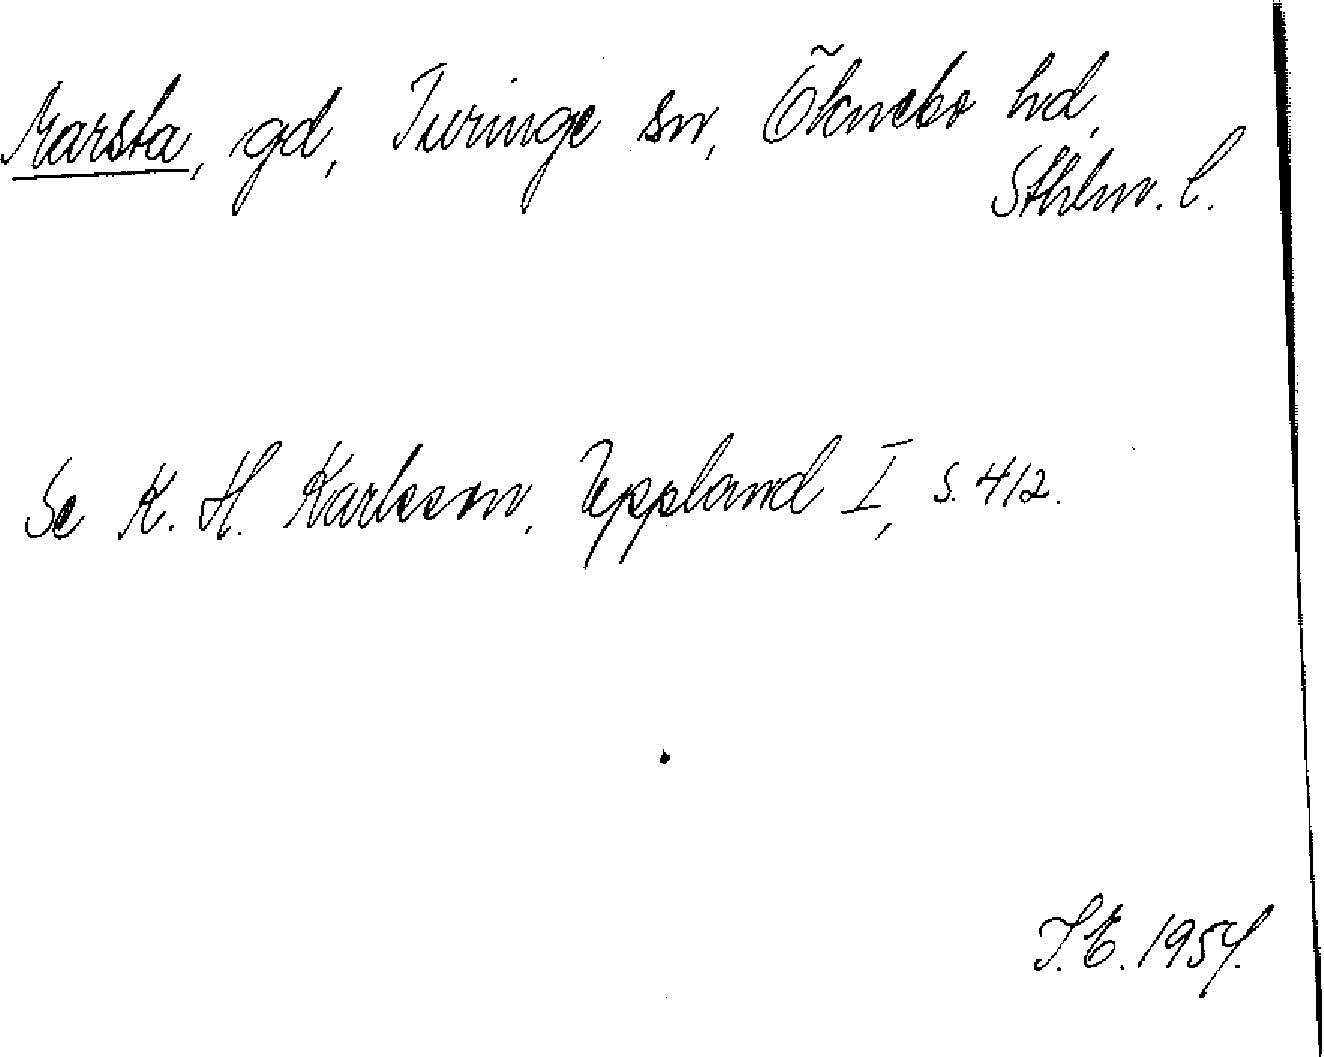 Marsta, gd, Turinge sn, Öknebo hd,
Sthlm. l.
Se K. H. Karlsson, Uppland I, s. 412.
I. E. 1954.